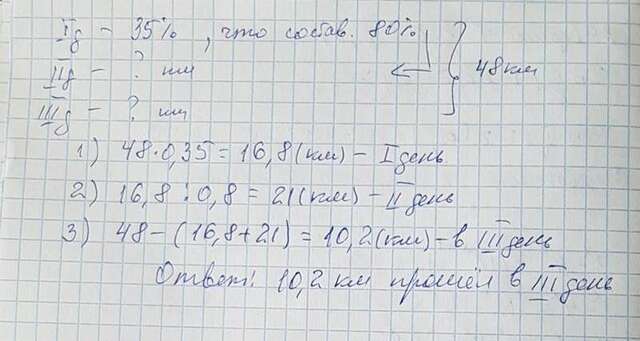 I д – 35%, что состав. 80%
II д – ? км
48 км
III д – ? км
1) 48·0,35 = 16,8 (км) – I день
2) 16,8 : 0,8 = 21 (км) – II день
3) 48 – (16,8 + 21) = 10,2 (км) – в III день
Ответ: 10,2 км прошёл в III день